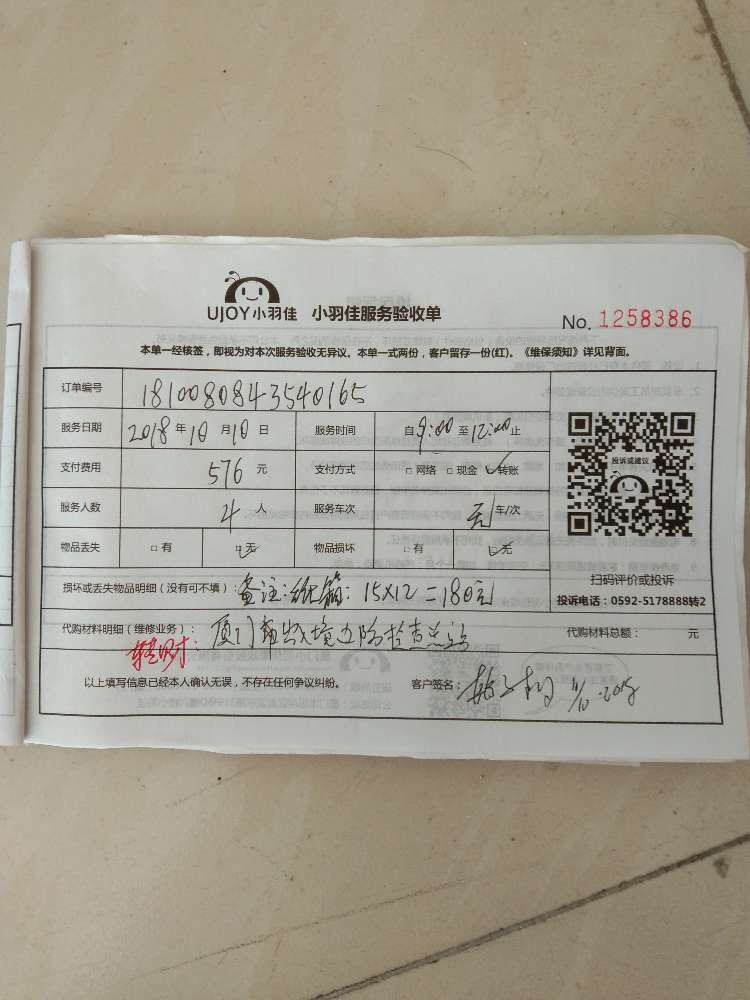 UJOY小羽佳 小羽佳服务验收单
No. 1258386
本单一经核签，即视为对本次服务验收无异议。本单一式两份，客户留存一份(红)。《维保须知》详见背面。
订单编号 1810080843540165
服务日期 2018年10月10日 服务时间 自9:00至12:00止
支付费用 576元 支付方式 □网络 □现金 ☑转账
服务人数 4人 服务车次 车/次
物品丢失 □有 ☑无 物品损坏 □有 ☑无
投诉或建议
扫码评价或投诉
投诉电话：0592-5178888转2
损坏或丢失物品明细（没有可不填）：备注：纸箱：15X12=180元
代购材料明细（维修业务）：厦门出入境边防检查总站
代购材料总额： 元
以上填写信息已经本人确认无误，不存在任何争议纠纷。 客户签名：